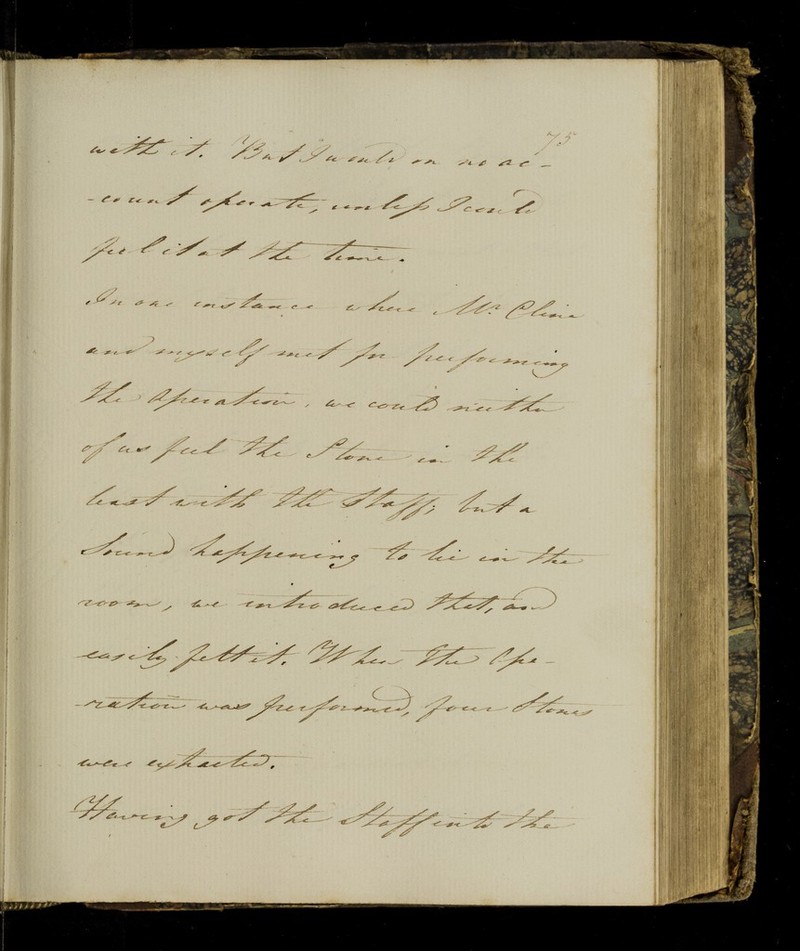 75
with it. But I would on no ac-
-count operate, unless I could
feel it at the time.
In one instance where Mr. Cline
and myself met for performing
the Operation, we could neither
of us feel the Stone in the
least with the Staff; but a
Sound happening to lie in the
room, we introduced that, and
easily felt it. When the Ope-
-ration was performed, four Stones
were extracted.
Having got the Staff into the